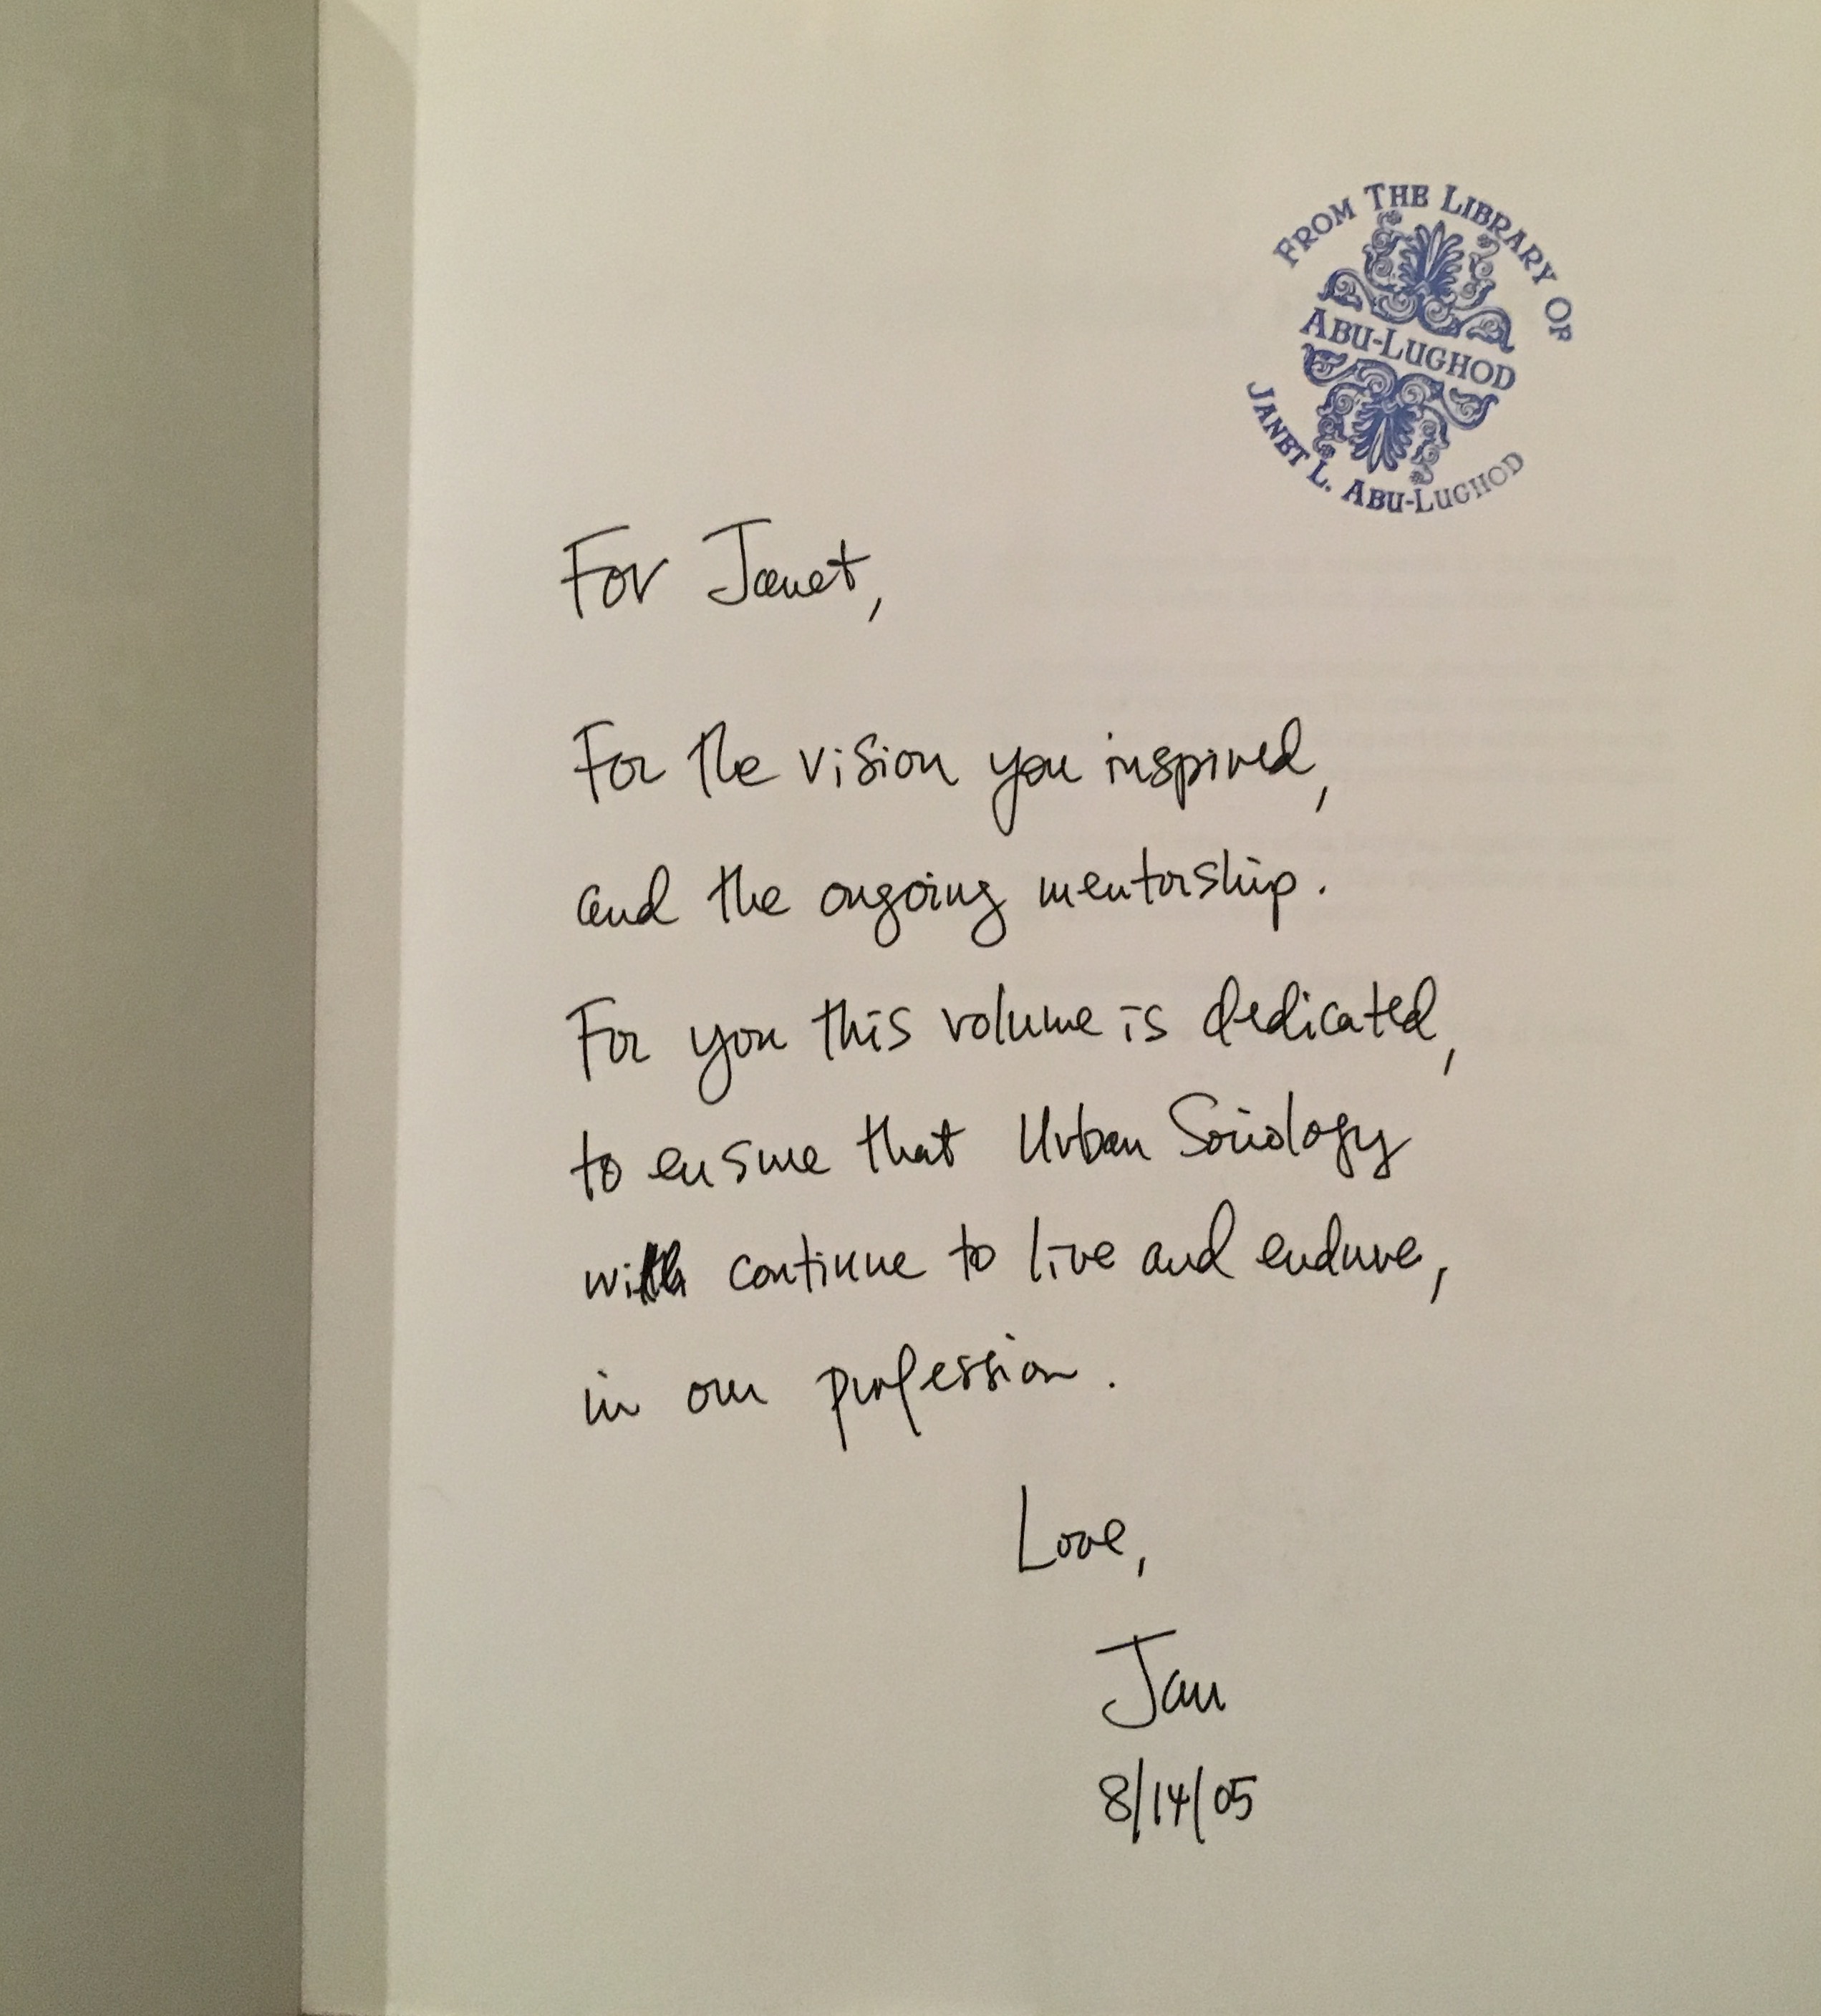 FROM THE LIBRARY OF
ABU-LUGHOD
JANET L. ABU-LUGHOD
For Janet,
For the vision you inspired,
and the ongoing mentorship.
For you this volume is dedicated,
to ensure that Urban Sociology
will continue to live and endure,
in our profession.
Love,
Jan
8/14/05